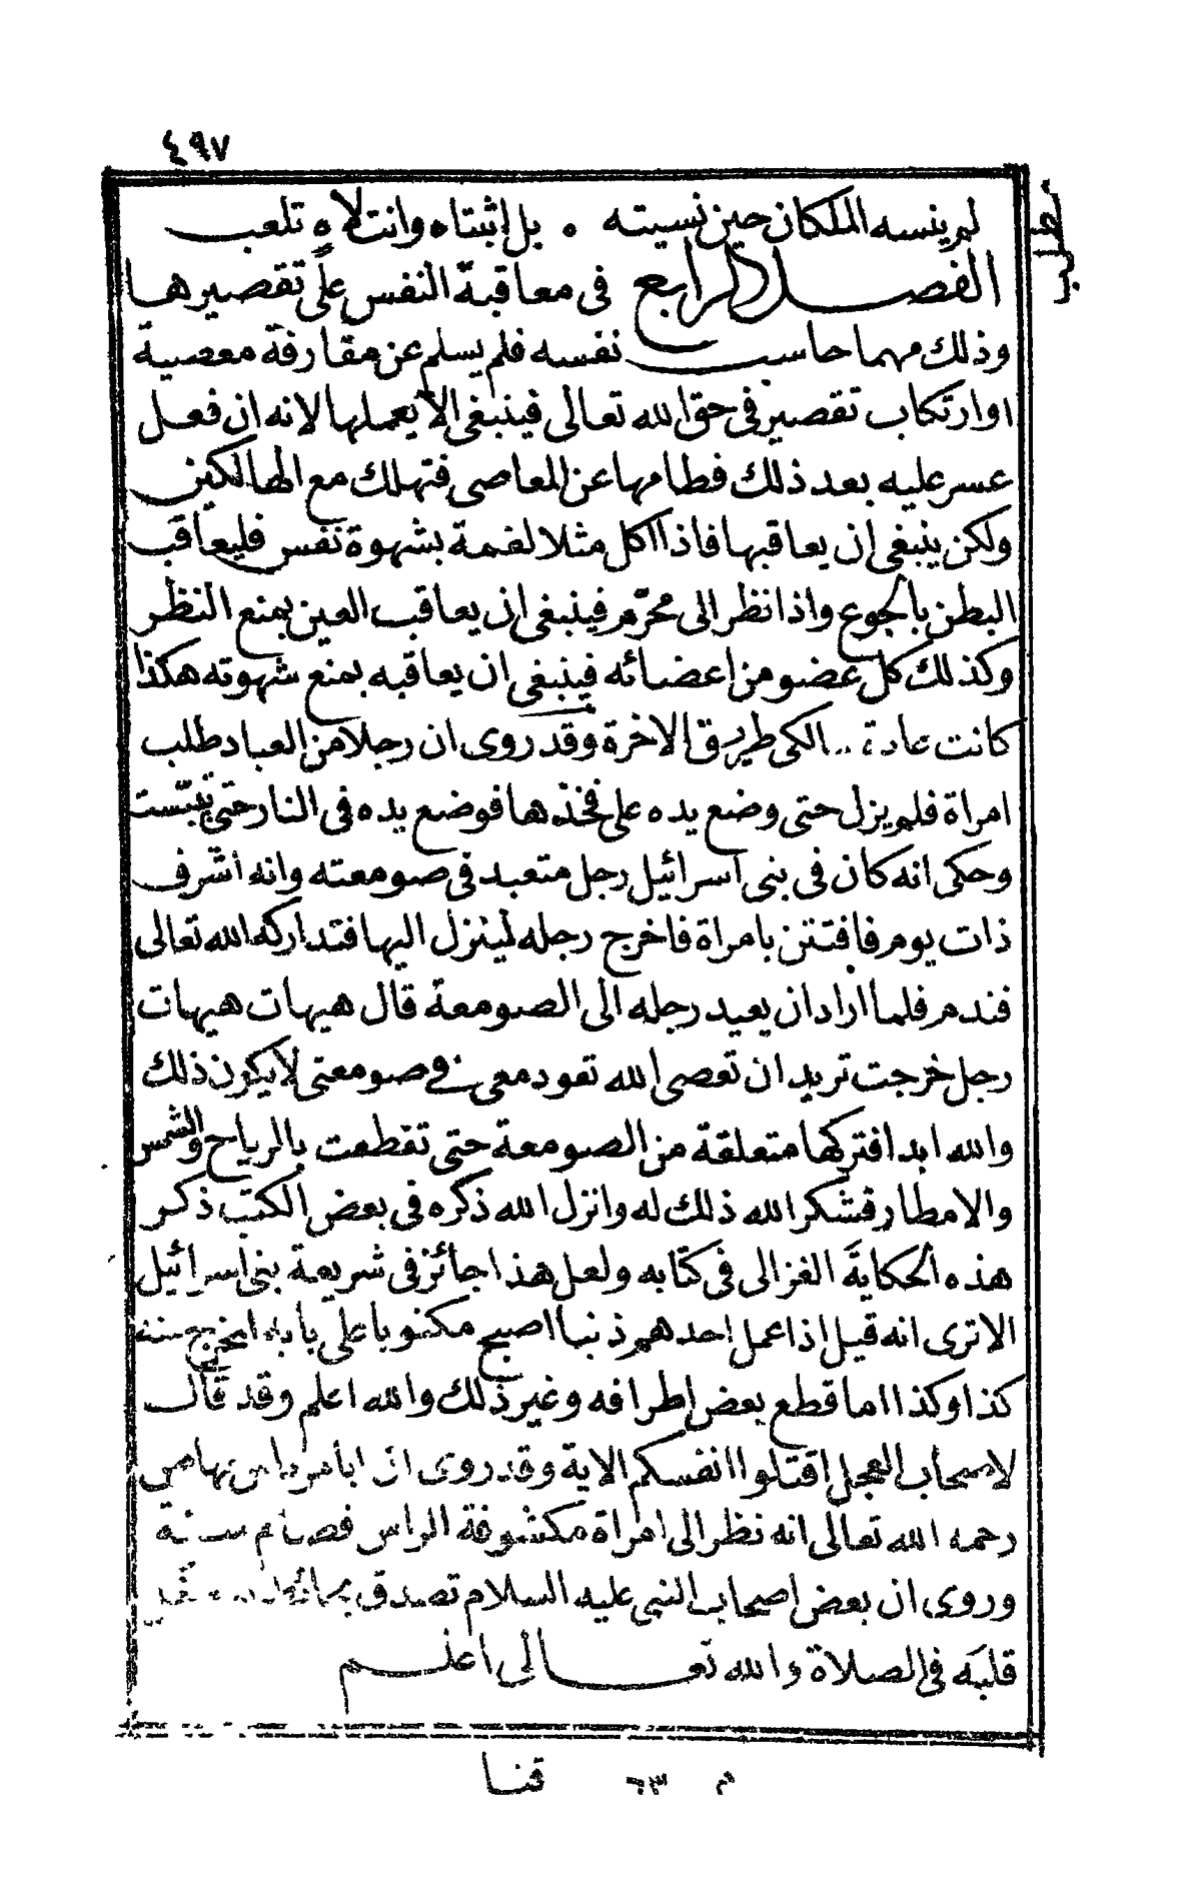 ٤٩٧
لم ينسه الملكان حين نسيته ٥ بل اثبتاه وانت لاهٍ تلعب
الفصل الرابع فى معاقبة النفس على تقصيرها
وذلك مهما حاسب نفسه فلم يسلم عن مقارفة معصية
او ارتكاب تقصير فى حق الله تعالى فينبغى الا يعملها لانه ان فعل
عسر عليه بعد ذلك فطامها عن المعاصى فتهلك مع الهالكين
ولكن ينبغى ان يعاقبها فاذا اكل مثلا لقمة بشهوة نفس فليعاقب
البطن بالجوع واذا نظر الى محرّم فينبغى ان يعاقب العين بمنع النظر
وكذلك كل عضو من اعضائه فينبغى ان يعاقبه بمنع شهوته هكذا
كانت عادة طريق الاخرة وقد روى ان رجلا من العباد طلب
امراة فلم يزل حتى وضع يده على فخذها فوضع يده فى النار حتى يبّست
وحكى انه كان فى بنى اسرائيل رجل متعبد فى صومعته وانه اشرف
ذات يوم فافتتن بامراة فاخرج رجله لينزل اليها فتداركه الله تعالى
فندم فلما اراد ان يعيد رجله الى الصومعة قال هيهات هيهات
رجل خرجت تريد ان تعصى الله تعود معى فى صومعتى لا يكون ذلك
والله ابدا فتركها متعلقة من الصومعة حتى تقطعت بالرياح والشمس
والامطار فشكر الله ذلك له وانزل الله ذكره فى بعض الكتب ذكر
هذه الحكايةَ الغزالى فى كتابه ولعل هذا جائز فى شريعة بنى اسرائيل
الا ترى انه قيل اذا عمل احدهم ذنبا اصبح مكتوبا على بابه
كذا وكذا اما قطع بعض اطرافه وغير ذلك والله اعلم وقد قال
لاصحاب العجل اقتلوا انفسكم الاية وقد روى ان
رحمه الله تعالى انه نظر الى امراة مكشوفة الراس فصام سنة
وروى ان بعض اصحاب النبى عليه السلام تصدق
قلبَه فى الصلاة والله تعالى اعلم
م ٦٣ قنا